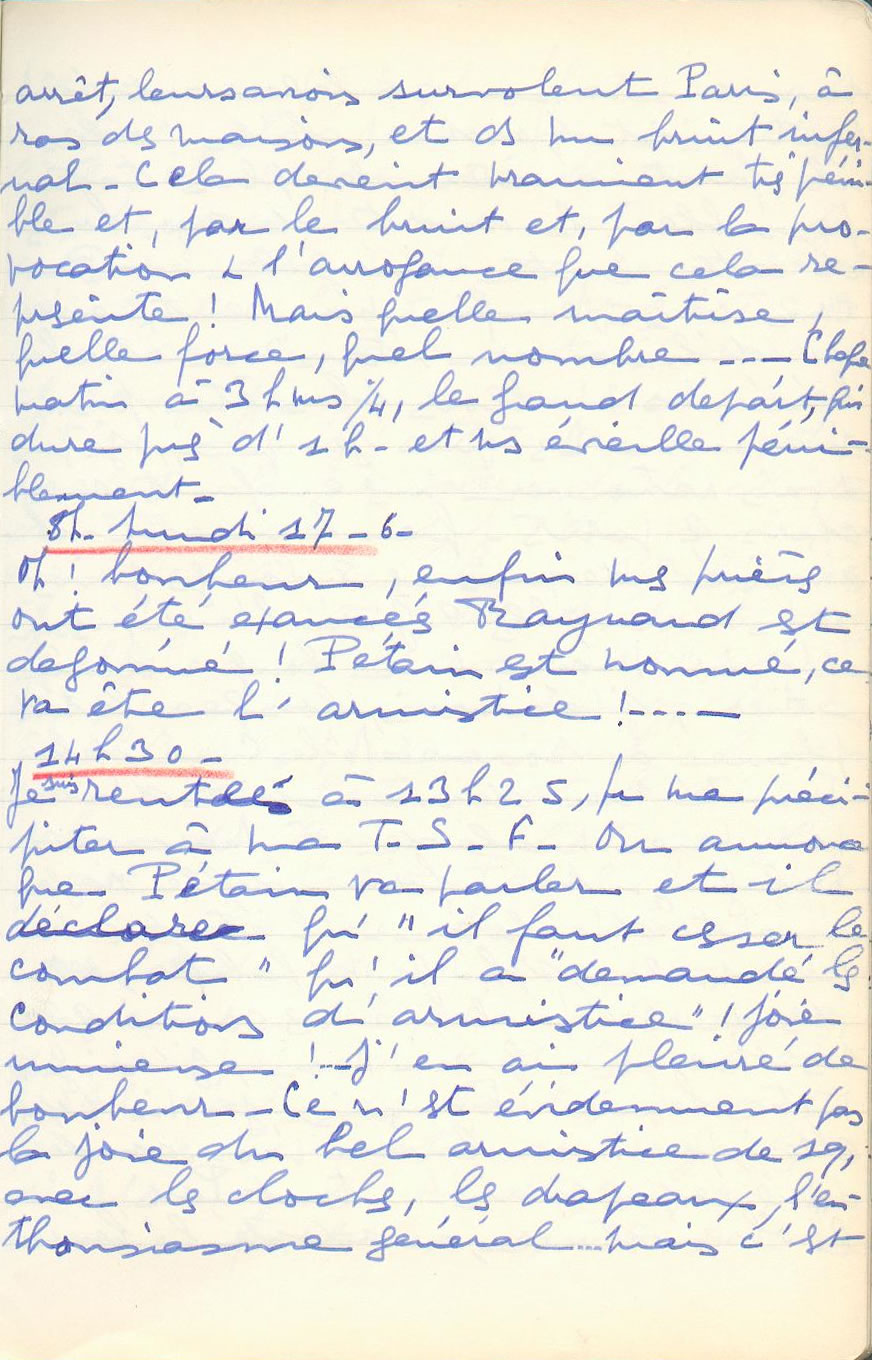 arrêt, leurs avions survolent Paris, à
ras des maisons, et ds un bruit infer-
nal - Cela devient vraiment très péni-
ble et, par le bruit et, par la pro-
vocation & l'arrogance que cela re-
présente ! Mais quelle maîtrise,
quelle force, quel nombre ---- Chaque
matin à 3h ms 1/4, le grand départ, qui
dure près d'1h - et ns éveille péni-
blement -
8h - Lundi 17 - 6 -
Oh ! bonheur, enfin nos prières
ont été exaucées Raynaud est
dégommé ! Pétain est nommé, ce
va être l'armistice ! ----
14h30 -
Je suis rentrée à 13h25, pr me préci-
piter à ma T - S - F - On annonce
que Pétain va parler et il
déclare qu' "il faut cesser le
combat" qu'il a "demandé les
conditions d'armistice" ! Joie
immense ! -- J'en ai pleuré de
bonheur - Ce n'est évidemment pas
la joie du bel armistice de 19,
avec les cloches, les drapeaux, l'en-
thousiasme général ... mais c'est